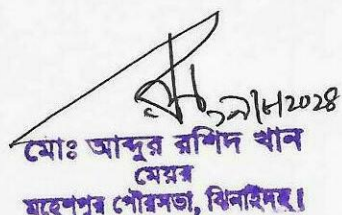 মোঃ আব্দুর রশিদ খান
মেয়র
মহেশপুর পৌরসভা, ঝিনাইদহ।